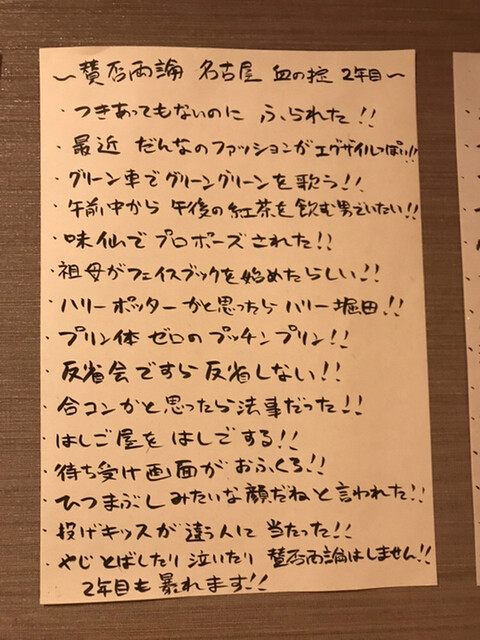 ～賛否両論 名古屋 血の掟 2年目～
・つきあってもないのに ふられた!!
・最近 だんなのファッションがエグザイルっぽい!!
・グリーン車でグリーングリーンを歌う!!
・午前中から 午後の紅茶を飲む男でいたい!!
・味仙でプロポーズされた!!
・祖母がフェイスブックを始めたらしい!!
・ハリーポッターかと思ったら ハリー堀田!!
・プリン体 ゼロのプッチンプリン!!
・反省会ですら反省しない!!
・合コンかと思ったら法事だった!!
・はしご屋を はしごする!!
・待ち受け画面が おふくろ!!
・ひつまぶしみたいな顔だねと言われた!!
・投げキッスが 違う人に 当たった!!
・やじとばしたり 泣いたり 賛否両論はしません!!
2年目も 暴れます!!